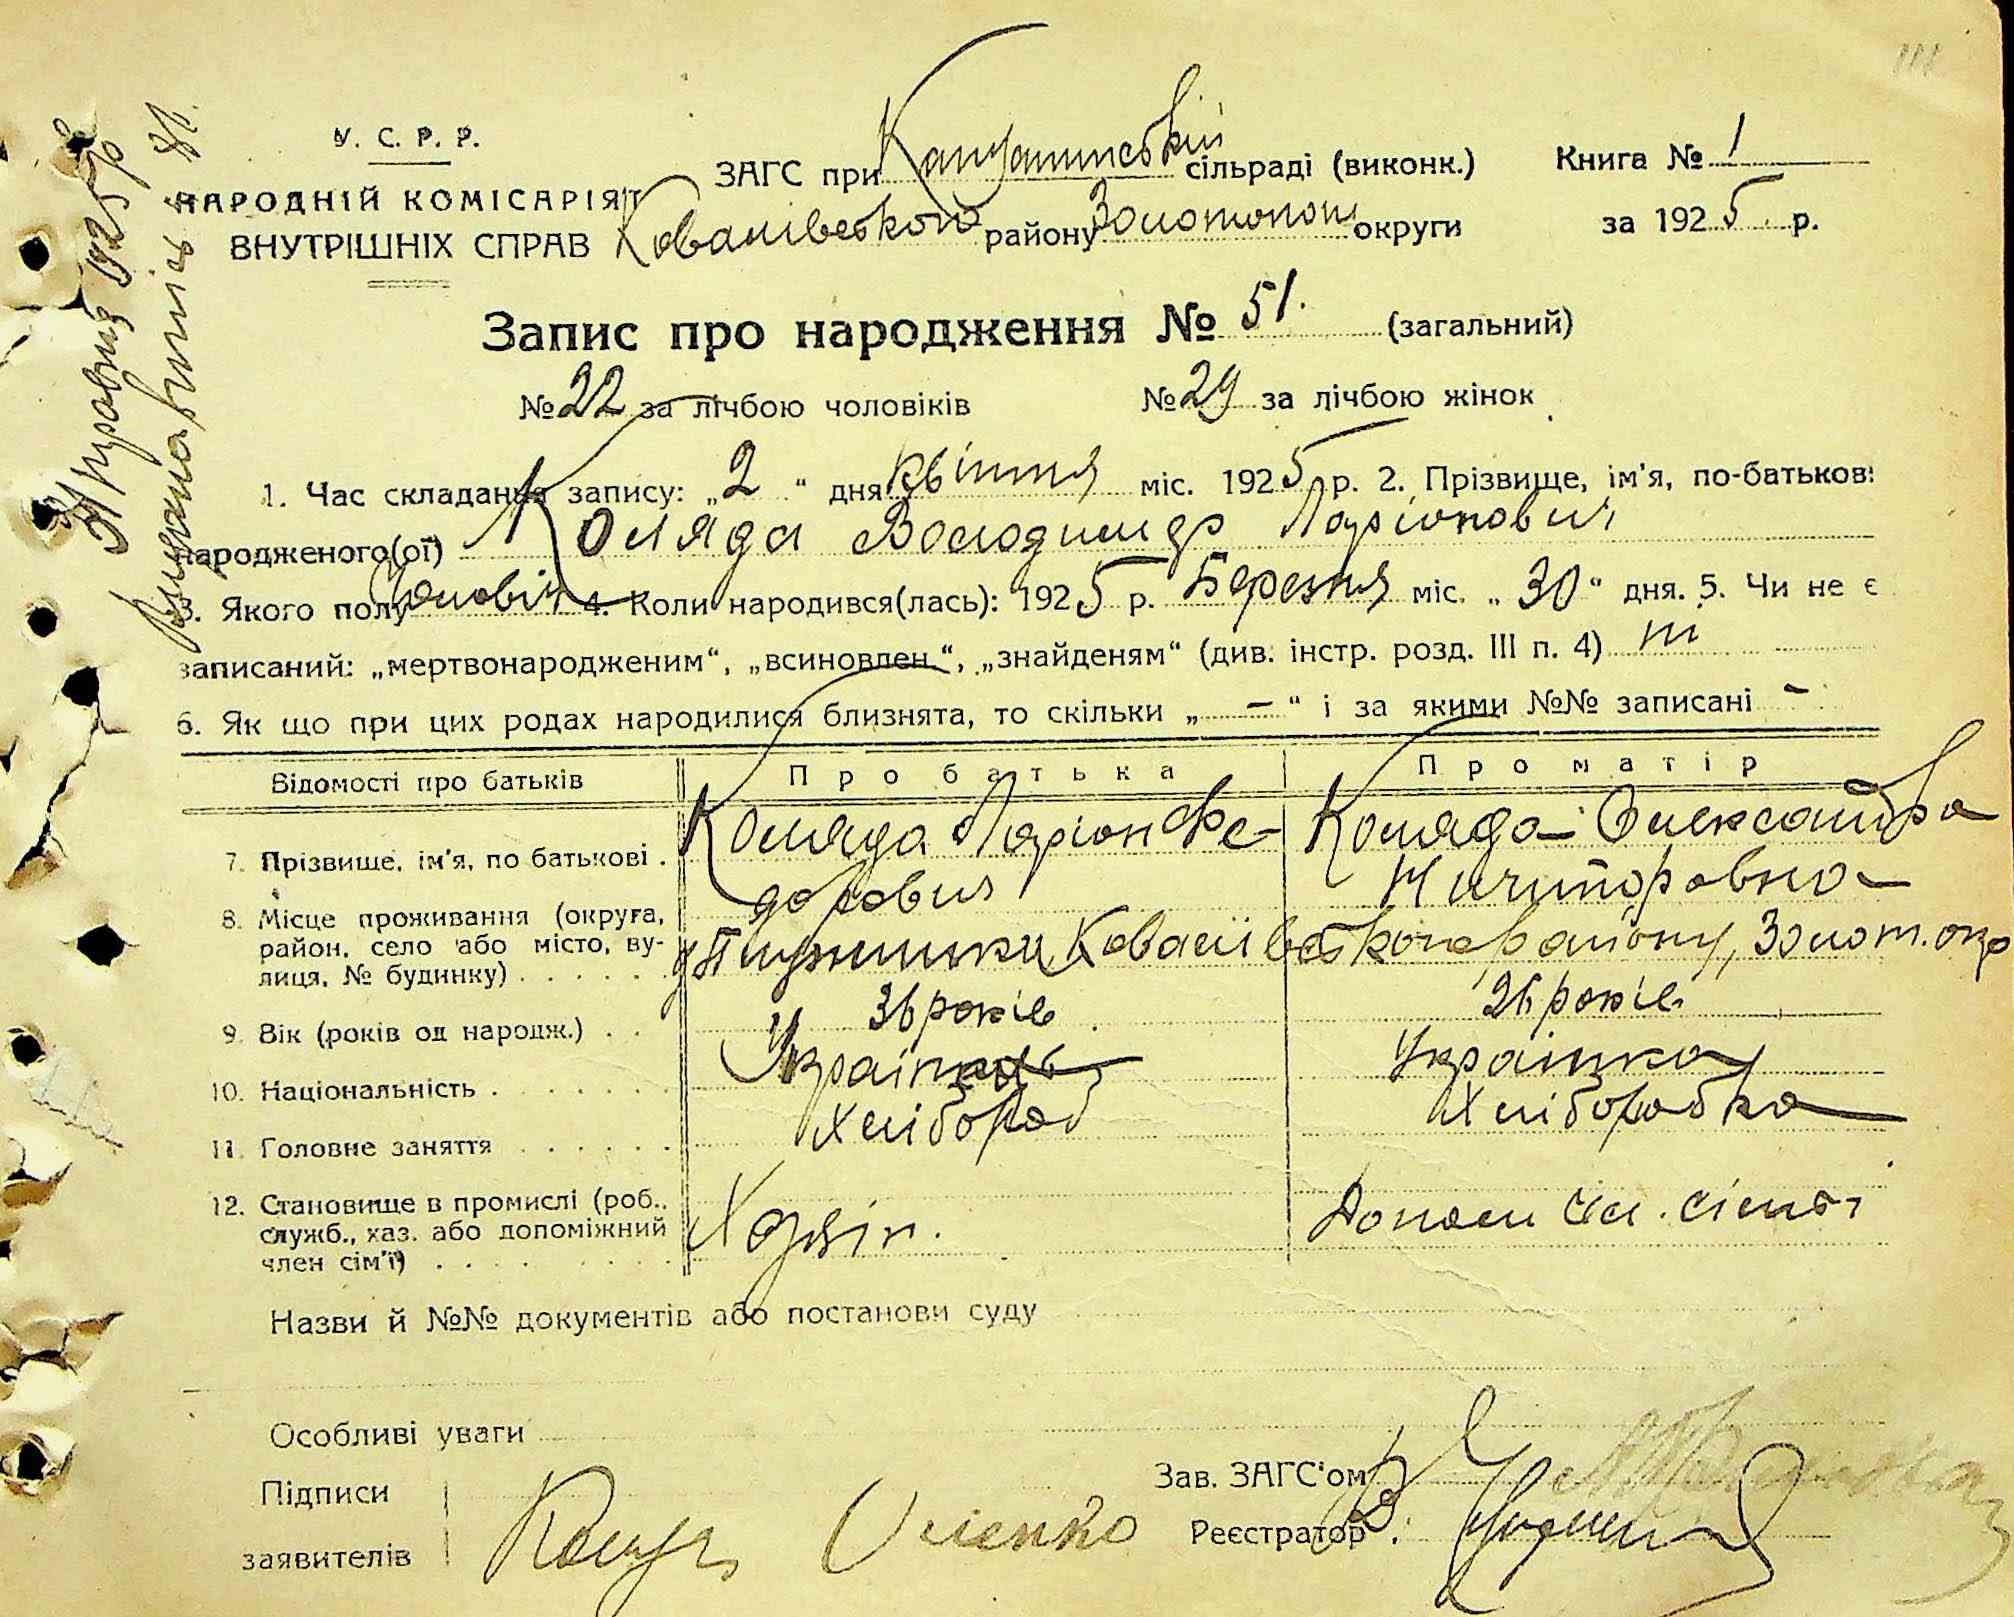 111
У. С. Р. Р.
НАРОДНІЙ КОМІСАРІЯТ
ВНУТРІШНІХ СПРАВ
ЗАГС при сільраді (виконк.)
Ковалівського району Золотонош округи
Книга № 1
за 1925 р.
Запис про народження № 51. (загальний)
№ 22 за лічбою чоловіків № 29 за лічбою жінок
1. Час складання запису: „2“ дня квітня міс. 1925 р. 2. Прізвище, ім'я, по-батькові
народженого(ої) Коляда Володимер Ларіонович
3. Якого полу Чоловіч 4. Коли народився(лась): 1925 р. Березня міс. „30“ дня. 5. Чи не є
записаний: „мертвонародженим“, „всиновлен.“, „знайденям“ (див. інстр. розд. III п. 4)
6. Як що при цих родах народилися близнята, то скільки „ — “ і за якими №№ записані -
Відомості про батьків Про батька Про матір
7. Прізвище, ім'я, по батькові . Коляда Ларіон Фе- Коляда Олександра
дорович Ничипоровна
8. Місце проживання (округа,
район, село або місто, ву-
лиця, № будинку) . . . . . Ковалівського району, Золот. окр
9. Вік (років од народж.) . . 36 років 26 років
10. Національність . . . . . . Українець Українка
11. Головне заняття . . . . . . Хлібороб Хліборобка
12. Становище в промислі (роб.,
служб., хаз. або допоміжний
член сім'ї) . . . . . . . . Хазяін. Допом чл. сімьі
Назви й №№ документів або постанови суду
Особливі уваги
Підписи
заявителів
Зав. ЗАГС'ом
Реєстратор